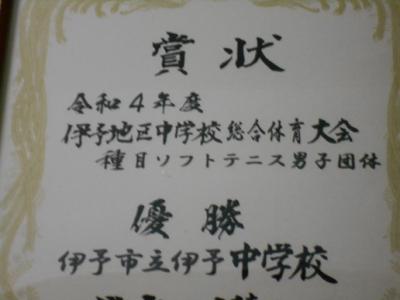 賞状
令和4年度
伊予地区中学校総合体育大会
種目ソフトテニス男子団体
優勝
伊予市立伊予中学校